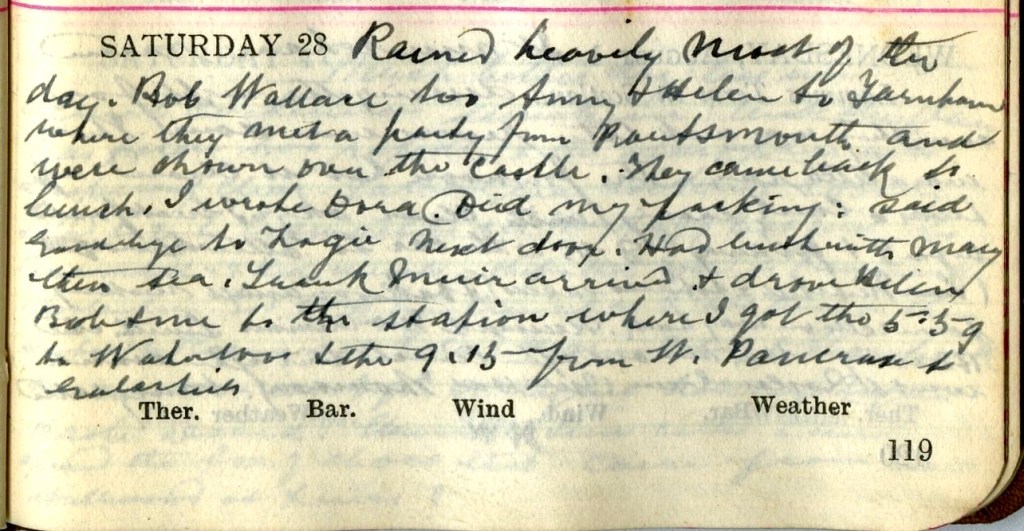 SATURDAY 28 Rained heavily most of the
day. Bob Wallace too Anny & Helen to Farnham
where they met a party from Poutsmouth and
were shown over the Castle. They came back to
lunch. I wrote Dora. Did my packing: said
Goodbye to Logie next door. Had lunch with Mary
then tea. Frank Muir arrived & drove Helen
Bob & me to the station where I got the 5.59
to Waterloo & the 9.15 from St. Pancras to
Galashiels
Ther. Bar. Wind Weather
119